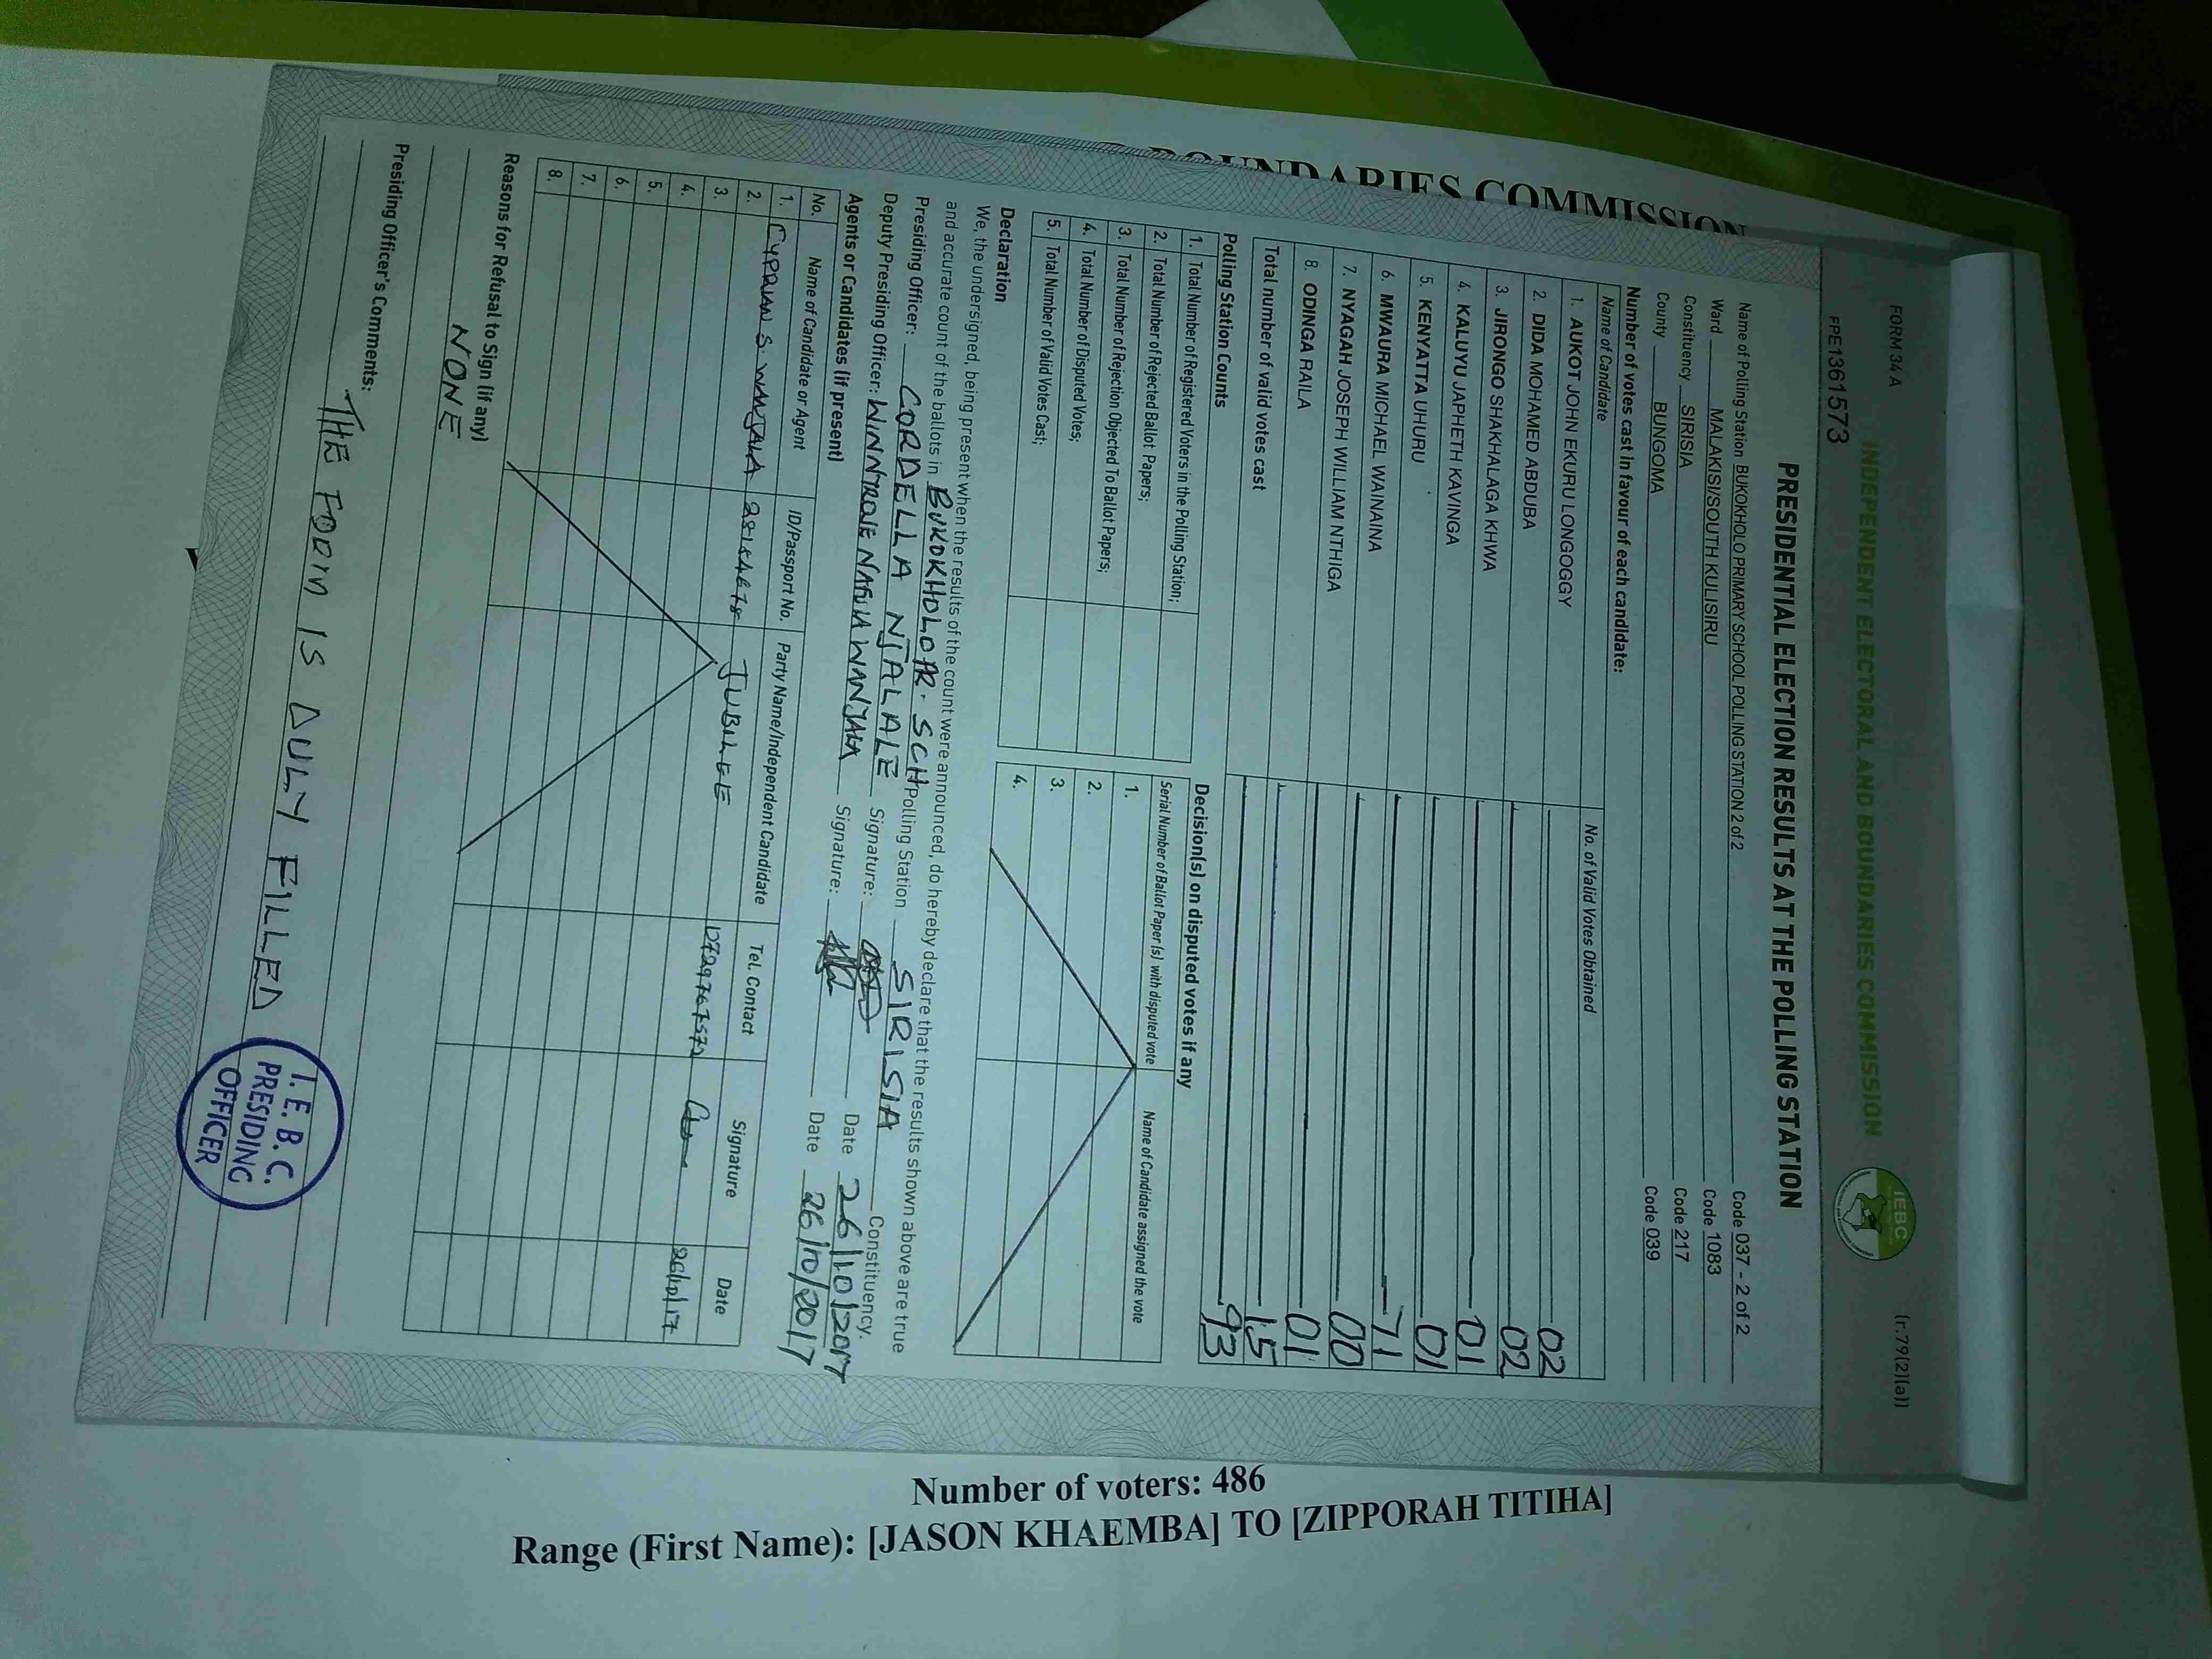 BOUNDARIES COMMISSION
FORM 34A
(r.79(2)(a))
INDEPENDENT ELECTORAL AND BOUNDARIES COMMISSION
IEBC
FPE1361573
PRESIDENTIAL ELECTION RESULTS AT THE POLLING STATION
Name of Polling Station BUKOKHOLO PRIMARY SCHOOL POLLING STATION 2 of 2 Code 037 - 2 of 2
Ward MALAKISI/SOUTH KULISIRU Code 1083
Constituency SIRISIA Code 217
County BUNGOMA Code 039
Number of votes cast in favour of each candidate:
Name of Candidate No. of Valid Votes Obtained
1. AUKOT JOHN EKURU LONGOGGY 02
2. DIDA MOHAMED ABDUBA 02
3. JIRONGO SHAKHALAGA KHWA 01
4. KALUYU JAPHETH KAVINGA 01
5. KENYATTA UHURU 71
6. MWAURA MICHAEL WAINAINA 00
7. NYAGAH JOSEPH WILLIAM NTHIGA 01
8. ODINGA RAILA 15
Total number of valid votes cast 93
Polling Station Counts
1. Total Number of Registered Voters in the Polling Station;
2. Total Number of Rejected Ballot Papers;
3. Total Number of Rejection Objected To Ballot Papers;
4. Total Number of Disputed Votes;
5. Total Number of Valid Votes Cast;
Decision(s) on disputed votes if any
Serial Number of Ballot Paper (s) with disputed vote Name of Candidate assigned the vote
1.
2.
3.
4.
Declaration
We, the undersigned, being present when the results of the count were announced, do hereby declare that the results shown above are true
and accurate count of the ballots in BUKOKHOLO PR. SCH Polling Station SIRISIA Constituency.
Presiding Officer: CORDELLA NJALALE Signature: Date 26/10/2017
Deputy Presiding Officer: WINNTROSE WANJALA Signature: Date 26/10/2017
Agents or Candidates (if present)
No. Name of Candidate or Agent ID/Passport No. Party Name/Independent Candidate Tel. Contact Signature Date
1. CYPRIAN S. WANJALA 28154678 JUBILEE 26/10/17
2.
3.
4.
5.
6.
7.
8.
Reasons for Refusal to Sign (if any)
NONE
Presiding Officer's Comments:
THE FORM IS DULY FILLED
I.E.B.C.
PRESIDING
OFFICER
Number of voters: 486
Range (First Name): [JASON KHAEMBA] TO [ZIPPORAH TITIHA]